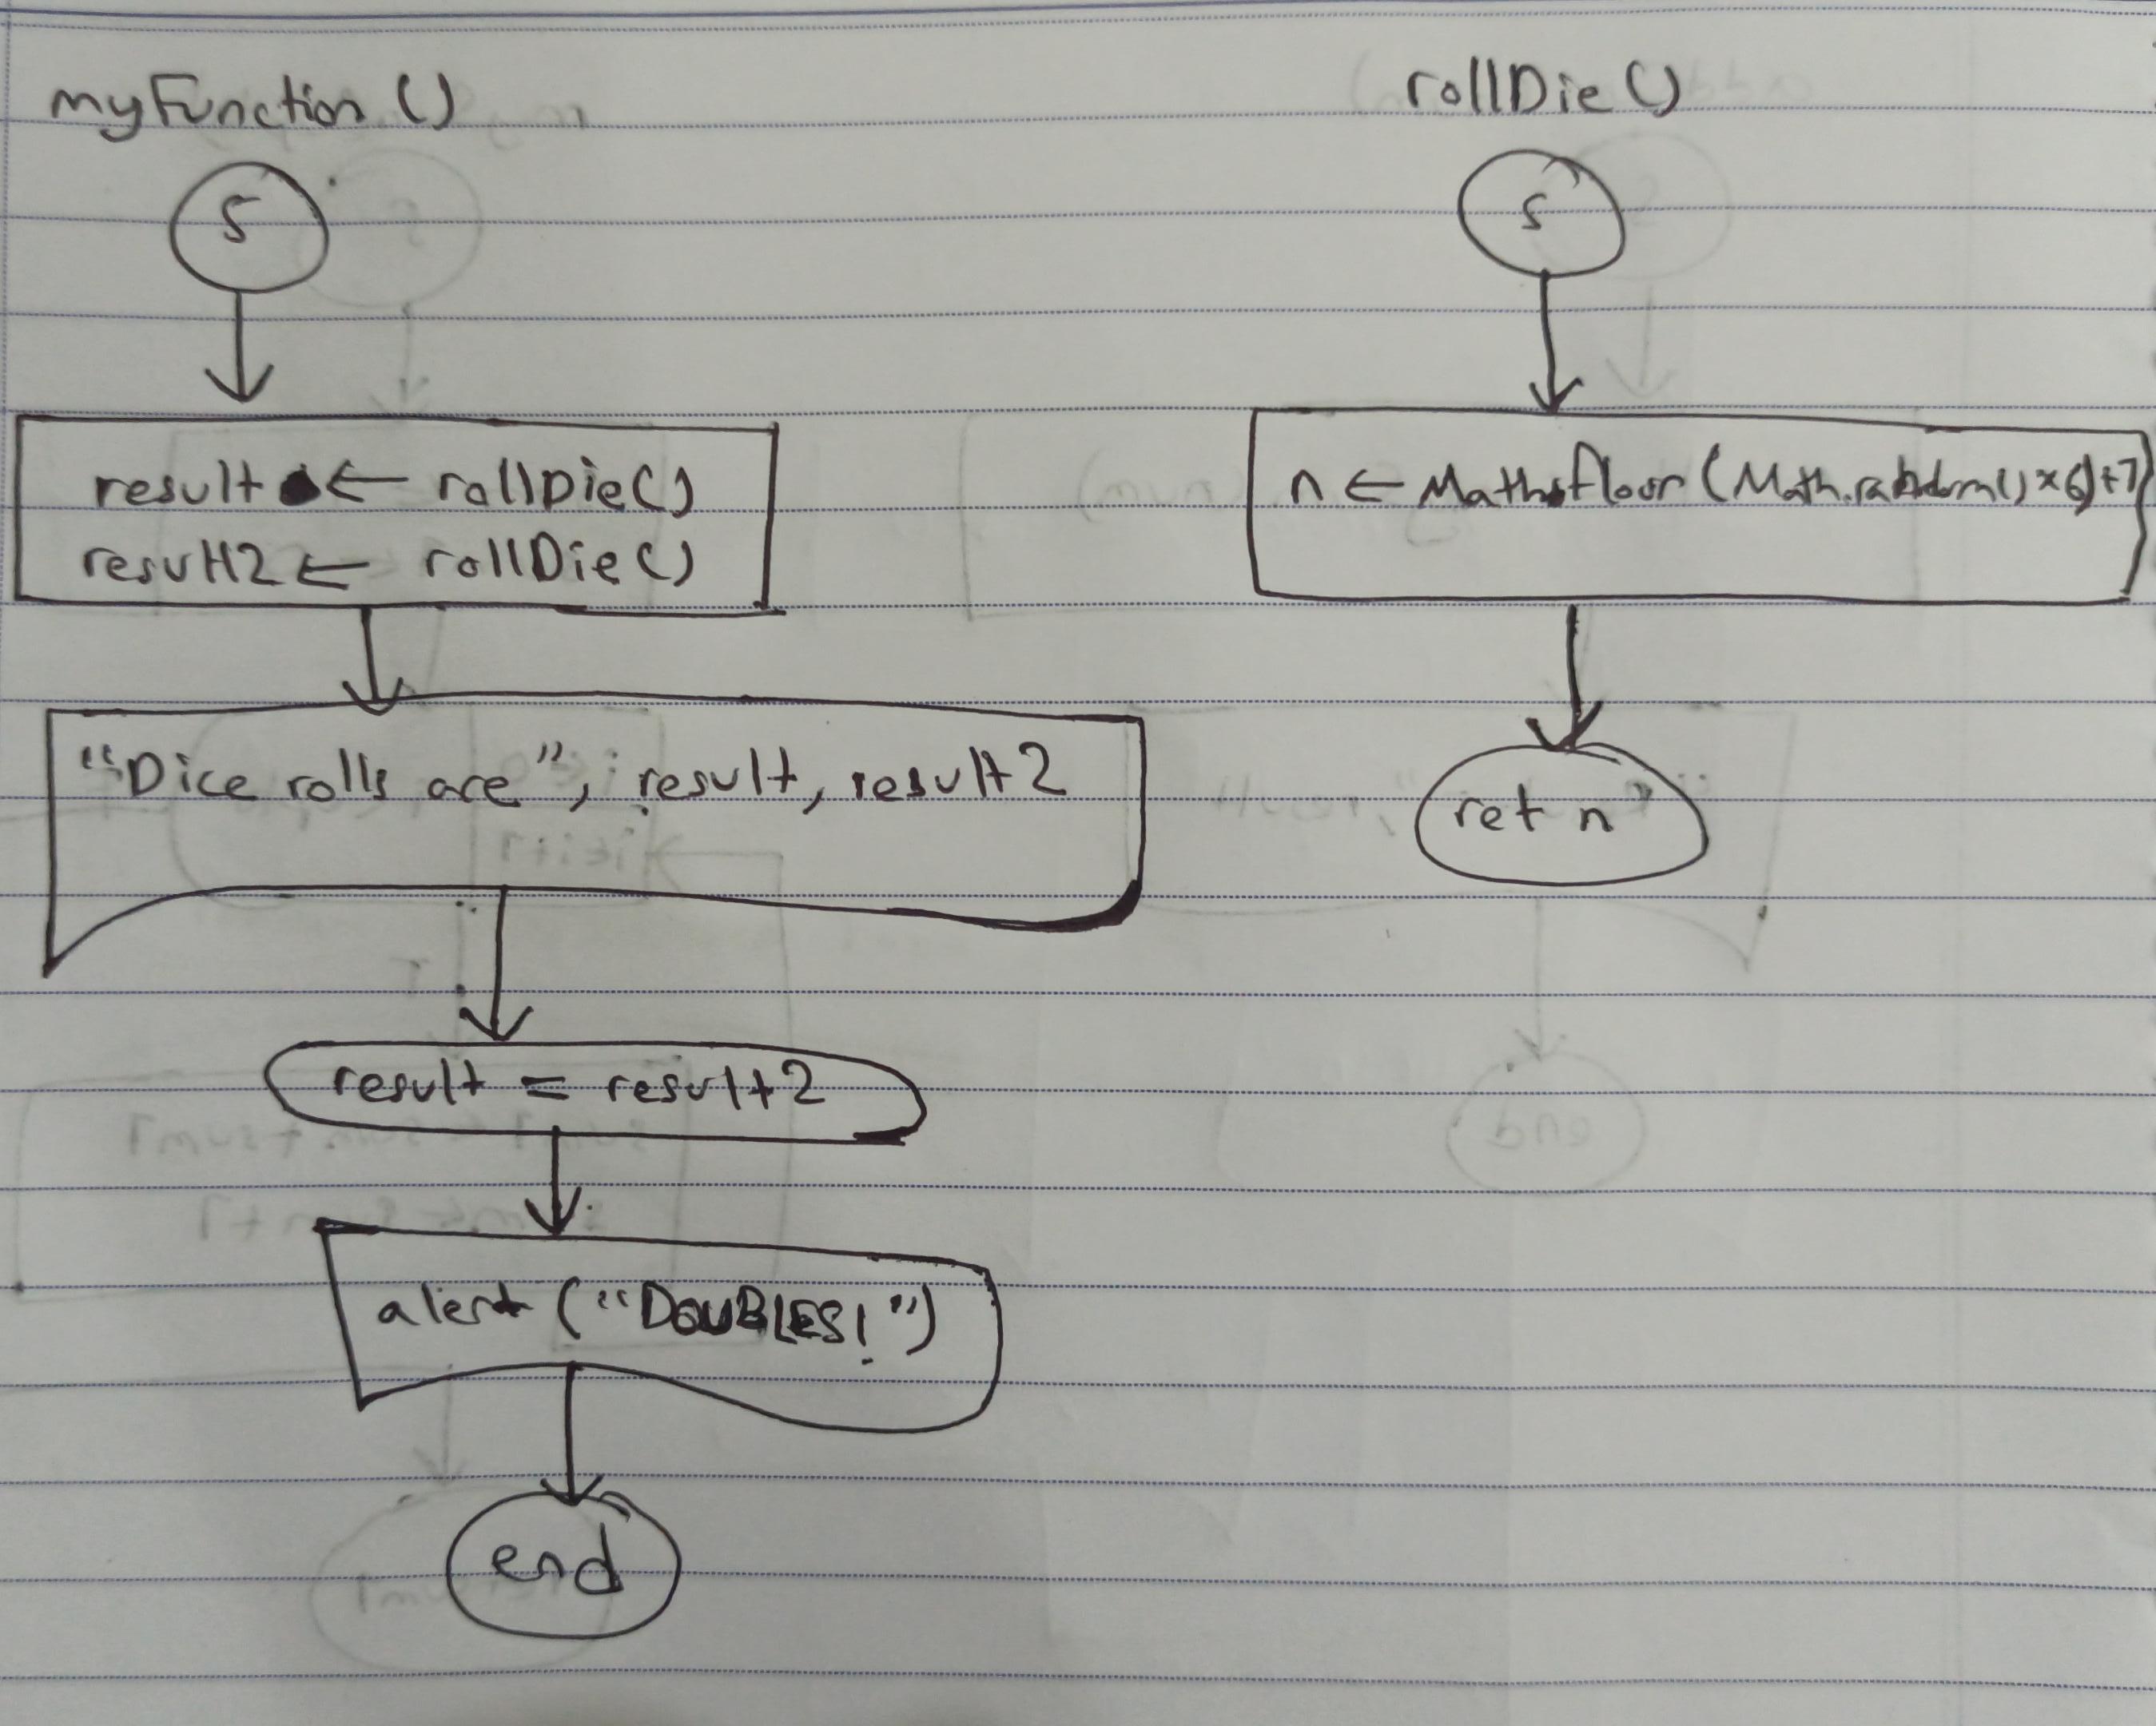 myFunction ()
S
result ← rollDie()
result2 ← rollDie()
"Dice rolls are", result, result2
result = result2
alert ("DOUBLES!")
end
rollDie ()
S
n ← Math.floor (Math.random() × 6)+1
ret n